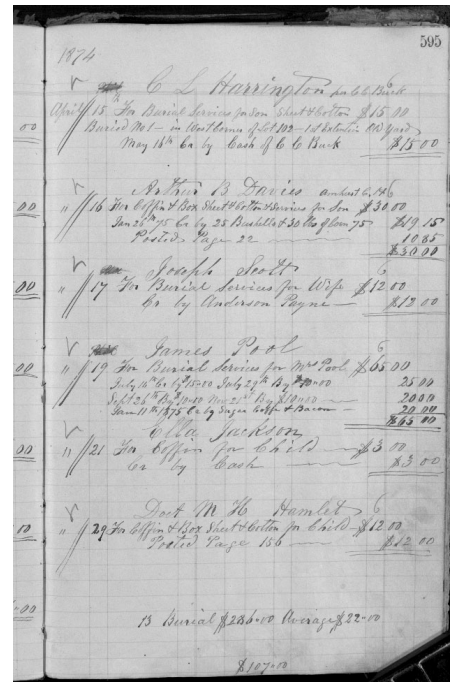 595
1874
C L Harrington for C C Buck 6
April 15th For Burial Services for Son Sheet & Cotton $15.00
Buried No 1 - in West Corner of Lot 102 - 1st Old Yard
May 16th Cr by Cash of C C Buck $15.00
Arthur B Davies 6
" 16 For Coffin & Box Sheet & Cotton & Services for Son $30.00
Jan 26th 75 Cr by 25 Bushells & 30 lbs of Corn 75 $19.15
Posted Page 22 10.85
$30.00
Joseph Scott 6
" 17 For Burial Services for Wife $12.00
Cr by Anderson Payne $12.00
James Pool 6
" 19 For Burial Services for Mrs Pool $65.00
July 16th Cr by $15.00 July 29th By $10.00 25.00
Sept 26th By $10.00 Nov 21st By $10.00 20.00
Jan 11th 1875 Cr by Sugar Coffe & Bacon 20.00
$65.00
Ella Jackson
" 21 For Coffin for Child $3.00
Cr by Cash $3.00
Doct M H Hamlet 6
" 29 For Coffin & Box Sheet & Cotton for Child $12.00
Posted Page 156 $12.00
13 Burial $286.00 Average $22.00
$107.00
00
00
00
00
00
00